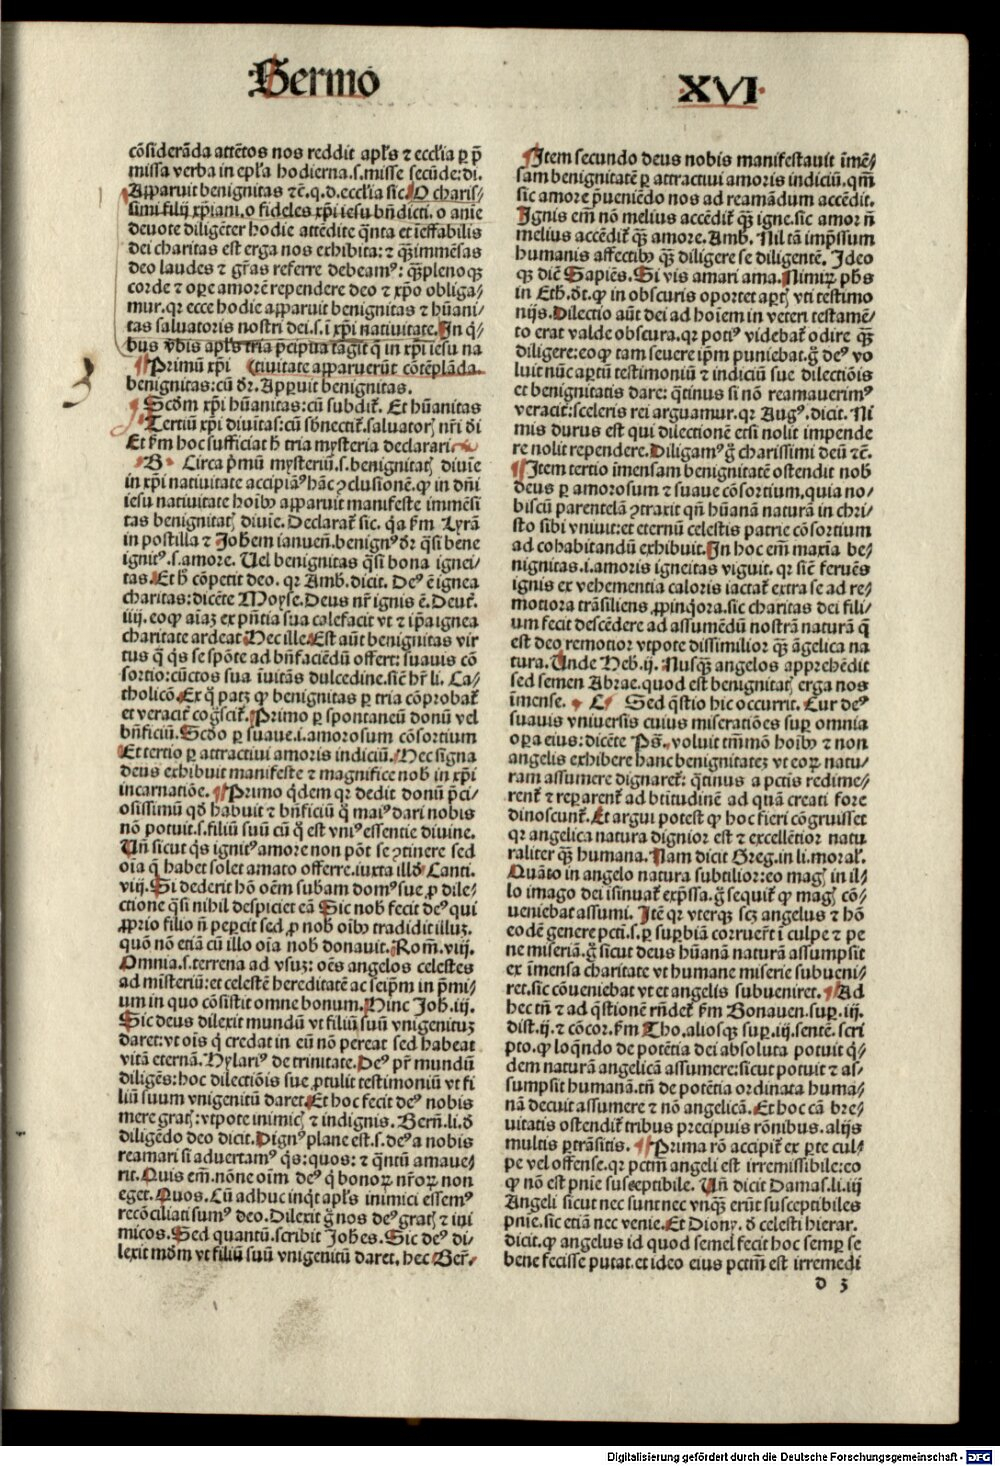 Sermo
XVI
cõsiderãda attẽtos nos reddit apl's ⁊ eccl'ia ꝑ p̃
missa verba in epl'a hodierna.s.misse secũde:di.
Apparuit benignitas ⁊c̃.q.d.eccl'ia sic. O charis⸗
simi filij xp̃iani.o fideles xp̃i iesu bñdicti.o anie
deuote diligẽter hodie attẽdite q̃nta et ieffabilis
dei charitas est erga nos exhibita: ⁊ qꝫ̃ immẽsas
deo laudes ⁊ gr̃as referre debeamꝰ: qꝫ̃ pleno qꝫ
corde ⁊ oꝑe amorẽ rependere deo ⁊ xp̃o obliga⸗
mur.qr ecce hodie apparuit benignitas ⁊ hũani⸗
tas saluatoris nostri dei.s.ĩ xp̃i natiuitate. In q̇⸗
bus v̾bis apl's tria p̃cipua tãgit q̃ in xp̃i iesu na
¶Primũ xp̃i (tiuitate apparuerũt cõtẽplãda.
benignitas:cũ d̃r. Apꝑuit benignitas.
¶Scdm xp̃i hũanitas:cũ subdit̃. Et hũanitas
¶Tertiũ xp̃i diuitas:cũ sb̾nectit̃.saluatorꝭ nr̃i di
Et ẜm hoc sufficiat ħ tria mysteria declarari
B Circa p̃mũ mysteriũ.s.benignitatꝭ diuie
in xp̃i natiuitate accipiãꝰ hãc ꝯclusionẽ.ꝙ in dñi
iesu natiuitate hoĩbꝰ apparuit manifeste immẽsi
tas benignitatꝭ diuie. Declarat̃ sic. q̇a ẜm Lyrã
in postilla ⁊ Johem ianueñ.benignꝰ d̃r q̃si bene
ignitꝰ.s.amore. Uel benignitas q̃si bona ignei⸗
tas. Et ħ cõpetit deo. qr Amb. dicit. Deꝰ ẽ ignea
charitas:dicẽte Moyse. Deus nr̃ ignis ẽ. Deut̃.
iiij.eo ꝙ aĩaꝫ ex pñtia sua calefacit vt ⁊ ip̃a ignea
charitate ardeat. Hec ille. Est aũt benignitas vir
tus q̃ q̇s se spõte ad bñfaciẽdũ offert: suauis cõ
sortio:cũctos sua ĩuitãs dulcedine.sic̃ hr̃ li. Ca⸗
tholicõ. Ex q̊ patꝫ ꝙ benignitas ꝑ tria cõprobat̃
et veracit̃ cog̊scit̃. Primo ꝑ spontaneũ donũ vel
bñficiũ. Scdo ꝑ suaue.i.amorosum cõsortium
Et tertio ꝑ attractiui amoris indiciũ. Hec signa
deus exhibuit manifeste ⁊ magnifice nob̾ in xp̃i
incarnatiõe. ¶Primo q̇dem qr dedit donũ p̃ci⸗
osissimũ qd̾ habuit ⁊ bñficiũ q̊ maiꝰ dari nobis
nõ potuit.s.filiũ suũ cũ q̊ est vniꝰ essentie diuine.
Uñ sicut q̇s ignitꝰ amore non põt se ꝯtinere sed
oĩa q̃ habet solet amato offerre.iuxta illd̾ Canti.
viij. Si dederit hõ oẽm subam domꝰ sue ꝓ dile⸗
ctione q̃si nihil despiciet eã Sic nob̾ fecit deꝰ qui
ꝓprio filio ñ peꝑcit sed ꝓ nob̾ oĩbꝰ tradidit illuꝫ.
quõ nõ etiã cũ illo oĩa nob̾ donauit. Rom̃. viij.
Omnia.s.terrena ad vsuꝫ: oẽs angelos celestes
ad ministeriũ: et celestẽ hereditatẽ ac seip̃m in p̃mi⸗
um in quo cõsistit omne bonum. Hinc Joh̾. iij.
Sic deus dilexit mundũ vt filiũ suũ vnigenituꝫ
daret: vt oĩs q̇ credat in eũ nõ pereat sed habeat
vitã eternã. Hylariꝰ de trinitate. Deꝰ pr̃ mundũ
diligẽs: hoc dilectiõis sue ꝓtulit testimoniũ vt fi
liũ suum vnigenitũ daret. Et hoc fecit deꝰ nobis
mere gratꝭ: vtpote inimicꝭ ⁊ indignis. Berñ. li. d̾
diligẽdo deo dicit. Dignꝰ plane est.s.deꝰ a nobis
reamari si aduertamꝰ q̇s: quos: ⁊ q̃ntũ amaue⸗
rit. Quis em̃. nõne oĩm deꝰ q̇ bonoꝝ nr̃oꝝ non
eget. Quos. Cũ adhuc inq̇t apl's inimici essemꝰ
recõciliati sumꝰ deo. Dilexit g̊ nos deꝰ gratꝭ ⁊ ini
micos. Sed quantũ. scribit Johes. Sic deꝰ di⸗
lexit mũdm vt filiũ suũ vnigenitũ daret. hec Ber̃.
¶Item secundo deus nobis manifestauit im̃ẽ⸗
sam benignitatẽ ꝑ attractiui amoris indiciũ.qm̃
sic amore p̃ueniẽdo nos ad reamãdum accẽdit.
Ignis em̃ nõ melius accẽdit̃ qꝫ̃ igne.sic amor ñ
melius accẽdit̃ qꝫ̃ amore. Amb. Nil tã imp̃ssum
humanis affectibꝰ qꝫ̃ diligere se diligentẽ. Ideo
qꝫ diẽ Sapiẽs. Si vis amari ama. Nimiꝝ phs
in Eth. d̃t. ꝙ in obscuris oportet aꝑtꝭ vti testimo
nijs. Dilectio aũt dei ad hoĩem in veteri testamẽ⸗
to erat valde obscura.qr potiꝰ videbat̃ odire qꝫ̃
diligere: eo ꝙ tam seuere ip̃m puniebat. g̊ deꝰ vo
luit nũc aꝑtũ testimoniũ ⁊ indiciũ sue dilectiõis
et benignitatis dare: q̃tinus si nõ reamauerimꝰ
veracit̃: sceleris rei arguamur. qr Augꝰ. dicit. Ni
mis durus est qui dilectionẽ etsi nolit impende
re nolit rependere. Diligamꝰ g̊ charissimi deũ ⁊c̃.
¶Item tertio imensam benignitatẽ ostendit nob̾
deus ꝑ amorosum ⁊ suaue cõsortium.quia no⸗
biscũ parentelã ꝯtraxit qñ hũanã naturã in chri⸗
sto sibi vniuit: et eternũ celestis patrie cõsortium
ad cohabitandũ exhibuit. In hoc em̃ maxĩa be⸗
nignitas.i.amoris igneitas viguit. qr sic̃ feruẽs
ignis ex vehementia caloris iactat̃ extra se ad re⸗
motiora trãsiliens ꝓpinq̇ora. sic charitas dei fili⸗
um fecit descẽdere ad assumẽdũ nostrã naturã q̃
est deo remotior vtpote dissimilior qꝫ̃ ãgelica na
tura. Unde Heb. ij. Nusqꝫ̃ angelos apprehẽdit
sed semen Abrae. quod est benignitatꝭ erga nos
imense. C Sed q̃stio hic occurrit. Cur deꝰ
suauis vniuersis cuius miseratiões suꝑ omnia
oꝑa eius: dicẽte Ps̃. voluit tm̃mõ hoĩbꝰ ⁊ non
angelis exhibere hanc benignitateꝫ vt eoꝝ natu⸗
ram assumere dignaret̃: q̃tinus a pctis redime⸗
rent̃ ⁊ reꝑarent̃ ad btitudinẽ ad quã creati fore
dinoscunt̃. Et argui potest ꝙ hoc fieri cõgruisset
qr angelica natura dignior est ⁊ excellẽtior natu
raliter qꝫ̃ humana. Nam dicit Greg. in li. moral̾.
Quãto in angelo natura subtilior: eo magꝭ in il⸗
lo imago dei isinuat̃ exp̃ssa. g̊ sequit̃ ꝙ magꝭ cõ⸗
ueniebat assumi. Itẽ qr vterqꝫ scꝫ angelus ⁊ hõ
eodẽ genere pcti.s.ꝑ suꝑbiã corruer̃t ĩ culpe ⁊ pe
ne miseriã. g̊ sicut deus hũanã naturã assumpsit
ex imensa charitate vt humane miserie subueni⸗
ret. sic cõueniebat vt et angelis subueniret. ¶Ad
hec tñ ⁊ ad q̃stionẽ rñdet̃ ẜm Bonauen. suꝑ. iij.
dist. ij. ⁊ cõcor. ẜm Tho. aliosqꝫ suꝑ. iij. sentẽ. scri
pto. ꝙ loq̃ndo de potẽtia dei absoluta potuit q̇⸗
dem naturã angelicã assumere: sicut potuit ⁊ as⸗
sumpsit humanã. tñ de potẽtia ordinata huma⸗
nã decuit assumere ⁊ nõ angelicã. Et hoc cã bre⸗
uitatis ostendit̃ tribus precipuis rõnibus. alijs
multis ꝑtrãsitis. ¶Prima rõ accipit̃ ex ꝑte cul⸗
pe vel offense. qr pctm̃ angeli est irremissibile: eo
ꝙ nõ est pnie susceptibile. Uñ dicit Damas. li. iij
Angeli sicut nec sunt nec vnqꝫ̃ erũt susceptibiles
pnie. sic etiã nec venie. Et Diony. d̾ celesti hierar.
dicit. ꝙ angelus id quod semel fecit hoc semꝑ se
bene fecisse putat. et ideo eius pctm̃ est irremedi
d 3
Digitalisierung gefördert durch die Deutsche Forschungsgemeinschaft - DFG